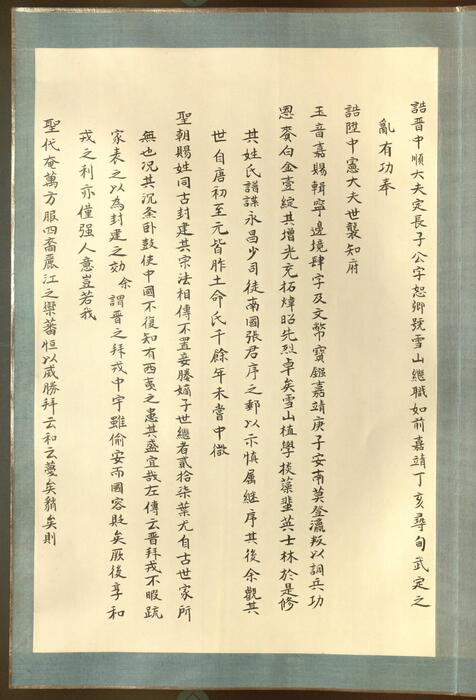 誥晋中順大夫定長子公字恕卿號雪山繼職如前嘉靖丁亥尋甸武定之
亂有功奉
誥陞中憲大夫世襲知府
玉音嘉賜輯寧邊境肆字及文幣寶鋌嘉靖庚子安南莫登瀛叛以調兵功
恩賚白金壹綻其增光充拓煒昭先烈卓矣雪山植學掞藻蜚英士林於是修
其姓氏譜諜永昌少司徒南園張君序之郵以示慎属継序其後余觀其
世自唐初至元皆胙土命氏千餘年未嘗中微
聖朝賜姓同古封建其宗法相傳不置妾媵嫡子世繼者貳拾柒葉尤自古世家所
無也況其沉条卧鼓使中國不復知有西夷之患其盛宜哉左傳云晋拜戎不暇䟽
家表之以為封建之効余謂晋之拜戎中宇雖偷安而國容貶矣厥後享和
戎之利亦僅强人意豈若我
聖代奄萬方服四裔麗江之欒蕃恒以威勝拜云和云蔑矣藐矣則